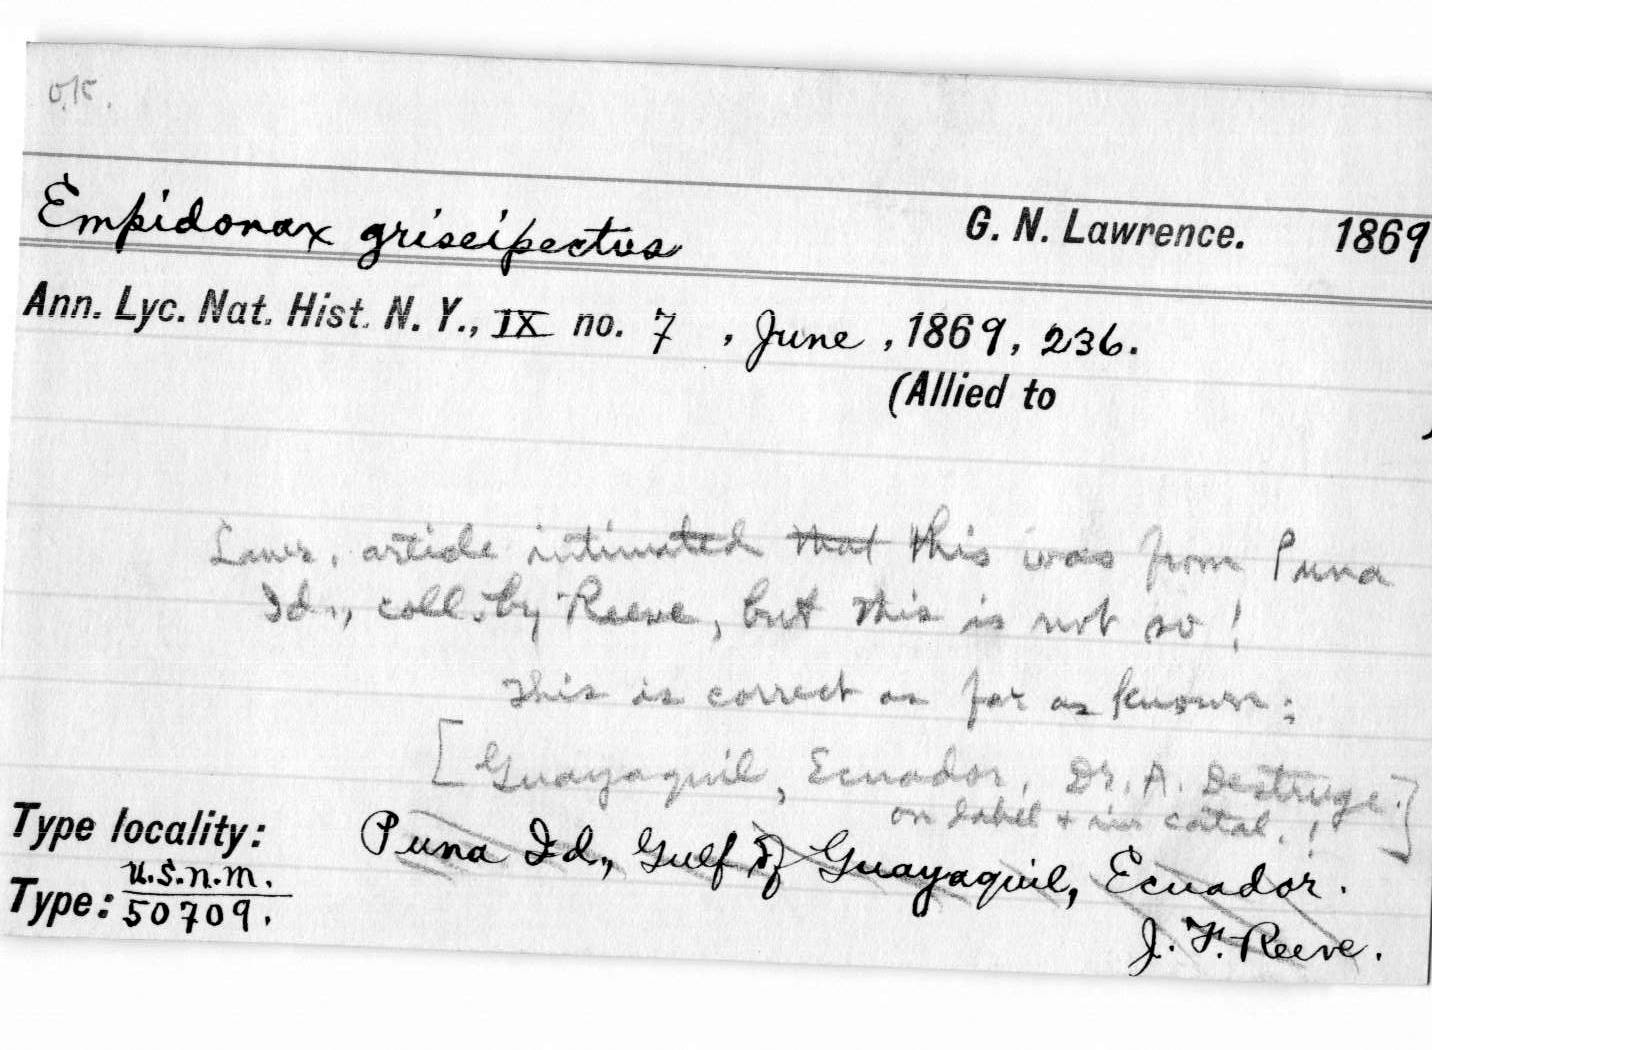 O.K.
Empidonax griseipectus G. N. Lawrence. 1869
Ann. Lyc. Nat. Hist. N. Y., IX no. 7 , June , 1869, 236.
(Allied to )
Lawr. article intimated that this was from Puna
Id., coll. by Reeve, but this is not so!
This is correct as far as known:
[Guayaquil, Ecuador, Dr. A. Destruge.]
on label + in catal. !
Type locality: Puna Id., Gulf of Guayaquil, Ecuador.
U.S.N.M.
Type: 50709.
J. F. Reeve.